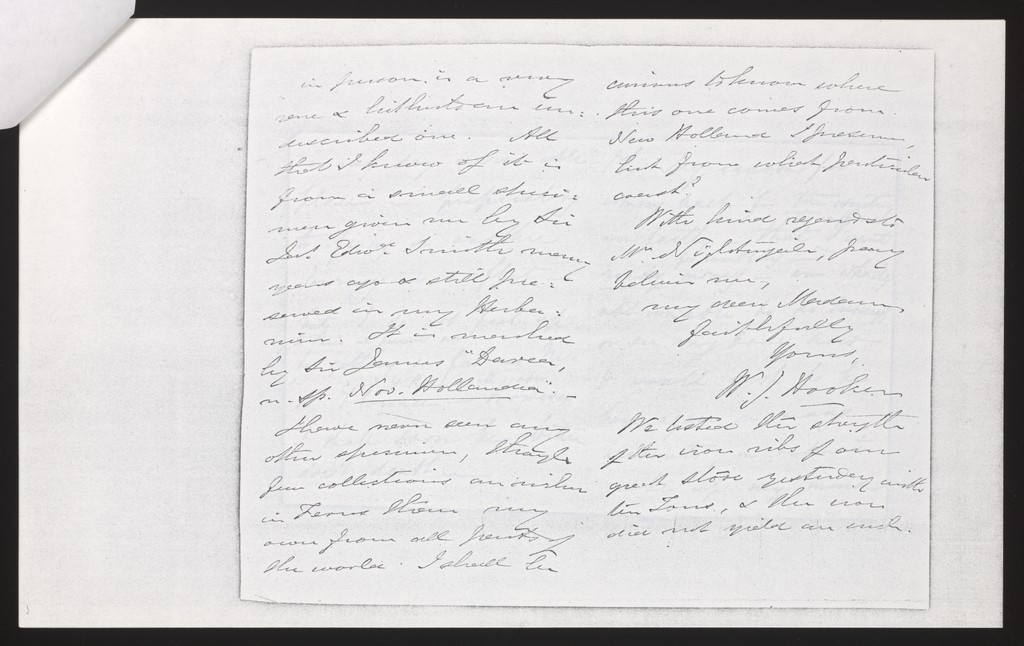 in person, is a very
rare & hitherto an un=
described one. All
that I know of it is
from a small speci=
men given me by Sir
Jas. Edwd. Smith many
years ago & still pre=
served in my Herba=
rium. It is marked
by Sir James "Darea,
n. sp. Nov. Hollandia". _
I have never seen any
other specimen, though
few collections are richer
in Ferns than my
own from all parts of
the world. I shall be
curious to know where
this one comes from.
New Holland I presume,
but from which particular
coast?
With kind regards to
Mr. Nightingale, pray
believe me,
my dear Madam
faithfully
Yours,
W. J. Hooker
We tested the strength
of the iron ribs of our
great stove yesterday with
ten Tons, & the iron
did not yield an inch.